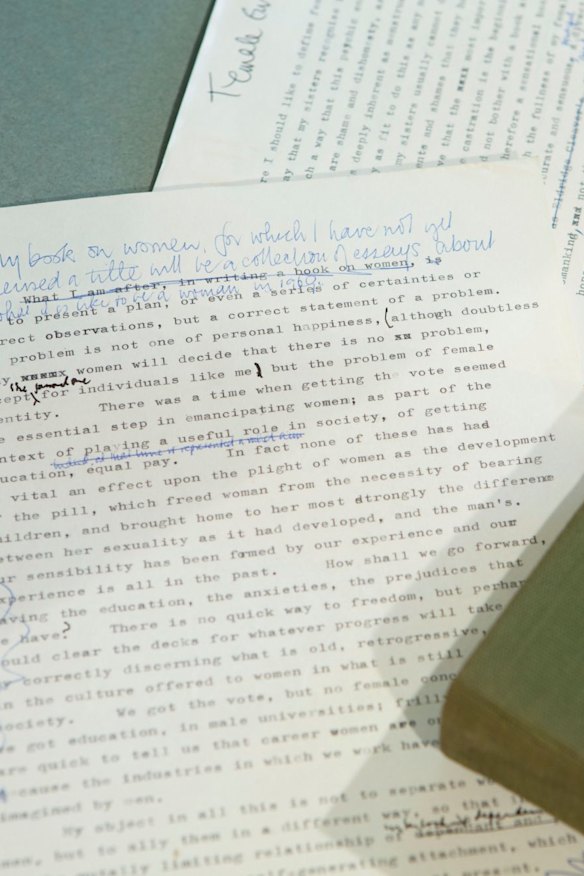 Female Eu
re I should like to define fe
ay that my sisters recognise
ch a way that this psychic
are shame and dishonesty,
s deeply inherent as
y as fit to do this as any
my sisters usually cannot
ents and shames that they
ve that the most impor
castration is the beginni
d not bother with a book
herefore a sensational boo
h the fullness of my
curate and
as Eldridge Cleaver
omankind, and not
My book on women, for which I have not yet
a title will be a collection of essays about
What it is like to be a woman in 1969.
What I am after, in writing a book on women, is
to present a plan, or even a series of certainties or
rrect observations, but a correct statement of a problem.
problem is not one of personal happiness, (although doubtless
y women will decide that there is no problem,
cept for individuals like me) but the problem of female
entity. There was a time when getting the vote seemed
e essential step in emancipating women; as part of the
ntext of playing a useful role in society, of getting
ucation, equal pay. In fact none of these has had
vital an effect upon the plight of women as the development
the pill, which freed woman from the necessity of bearing
hildren, and brought home to her most strongly the difference
etween her sexuality as it had developed, and the man's.
ur sensibility has been formed by our experience and our
xperience is all in the past. How shall we go forward,
aving the education, the anxieties, the prejudices that
e have? There is no quick way to freedom, but perhap
ould clear the decks for whatever progress will take
correctly discerning what is old, retrogressive,
n the culture offered to women in what is still
ociety. We got the vote, but no female conc
e got education, in male universities; frill
are quick to tell us that career women are on
cause the industries in which we work have
imagined by men.
My object in all this is not to separate wo
men, but to ally them in a different way, so that
tally limiting relationship of dependant and
self-generating attachment, which
present.